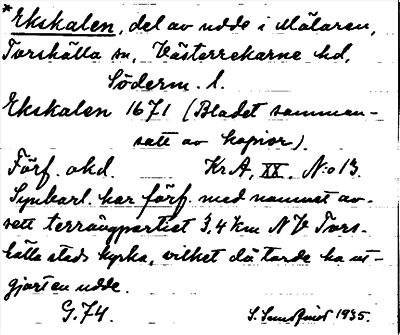 *Ekskalen, del av udde i Mälaren,
Torshälla sn, Västerrekarne hd,
Söderm. l.
Ekskalen 1671 (Bladet samman-
satt av kopior).
Förf. okd. Kr.A, XX. No 13.
Synbarl. har förf. med namnet av-
sett terrängpartiet 3,4 km NV Tors-
hälla stads kyrka, vilket då torde ha ut-
gjort en udde.
G.74. S. Sundqvist 1935.